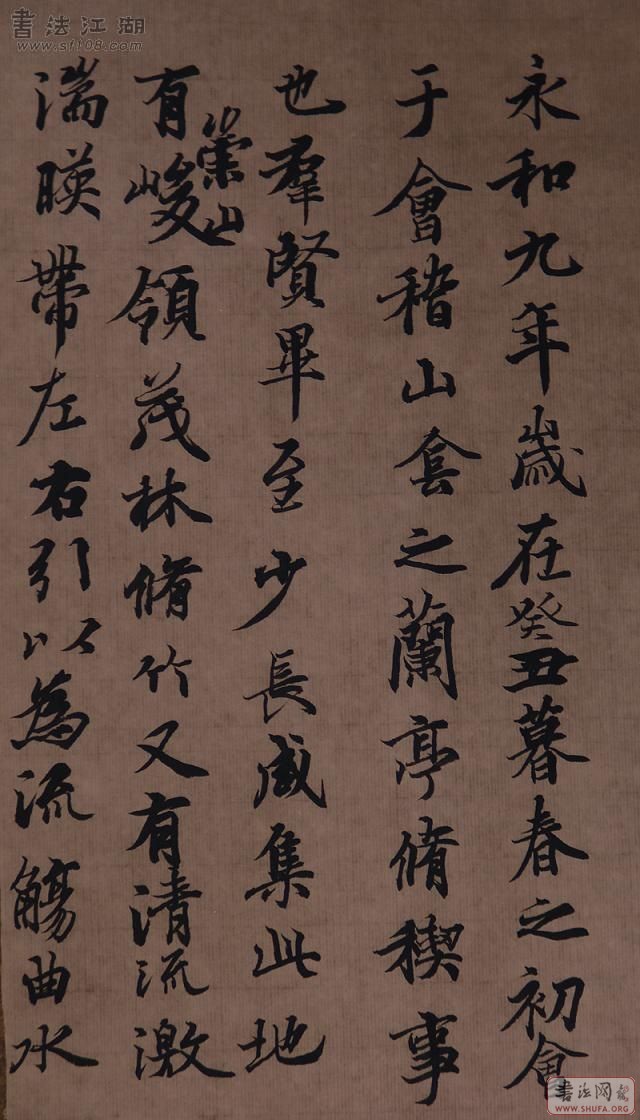 永和九年歲在癸丑暮春之初會
于會稽山陰之蘭亭脩稧事
也羣賢畢至少長咸集此地
有崇山峻領茂林脩竹又有清流激
湍暎帶左右引以為流觴曲水
書法江湖
www.sf108.com
書法网
WWW.SHUFA.ORG